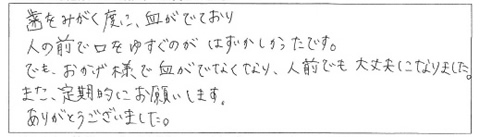 歯をみがく度に、血がでており
人の前で口をゆすぐのが はずかしかったです。
でも、おかげ様で血がでなくなり、人前でも大丈夫になりました。
また、定期的にお願いします。
ありがとうございました。